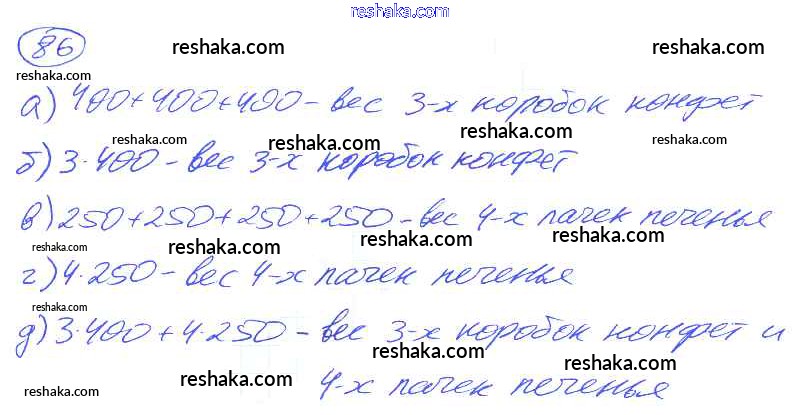 reshaka.com
86 reshaka.com reshaka.com
reshaka.com reshaka.com
а) 400+400+400 – вес 3-х коробок конфет
reshaka.com reshaka.com reshaka.com
б) 3·400 – вес 3-х коробок конфет
reshaka.com reshaka.com
в) 250+250+250+250 – вес 4-х пачек печенья
reshaka.com reshaka.com reshaka.com reshaka.com
г) 4·250 – вес 4-х пачек печенья
reshaka.com reshaka.com reshaka.com
д) 3·400+4·250 – вес 3-х коробок конфет и
reshaka.com reshaka.com
4-х пачек печенья
reshaka.com reshaka.com reshaka.com